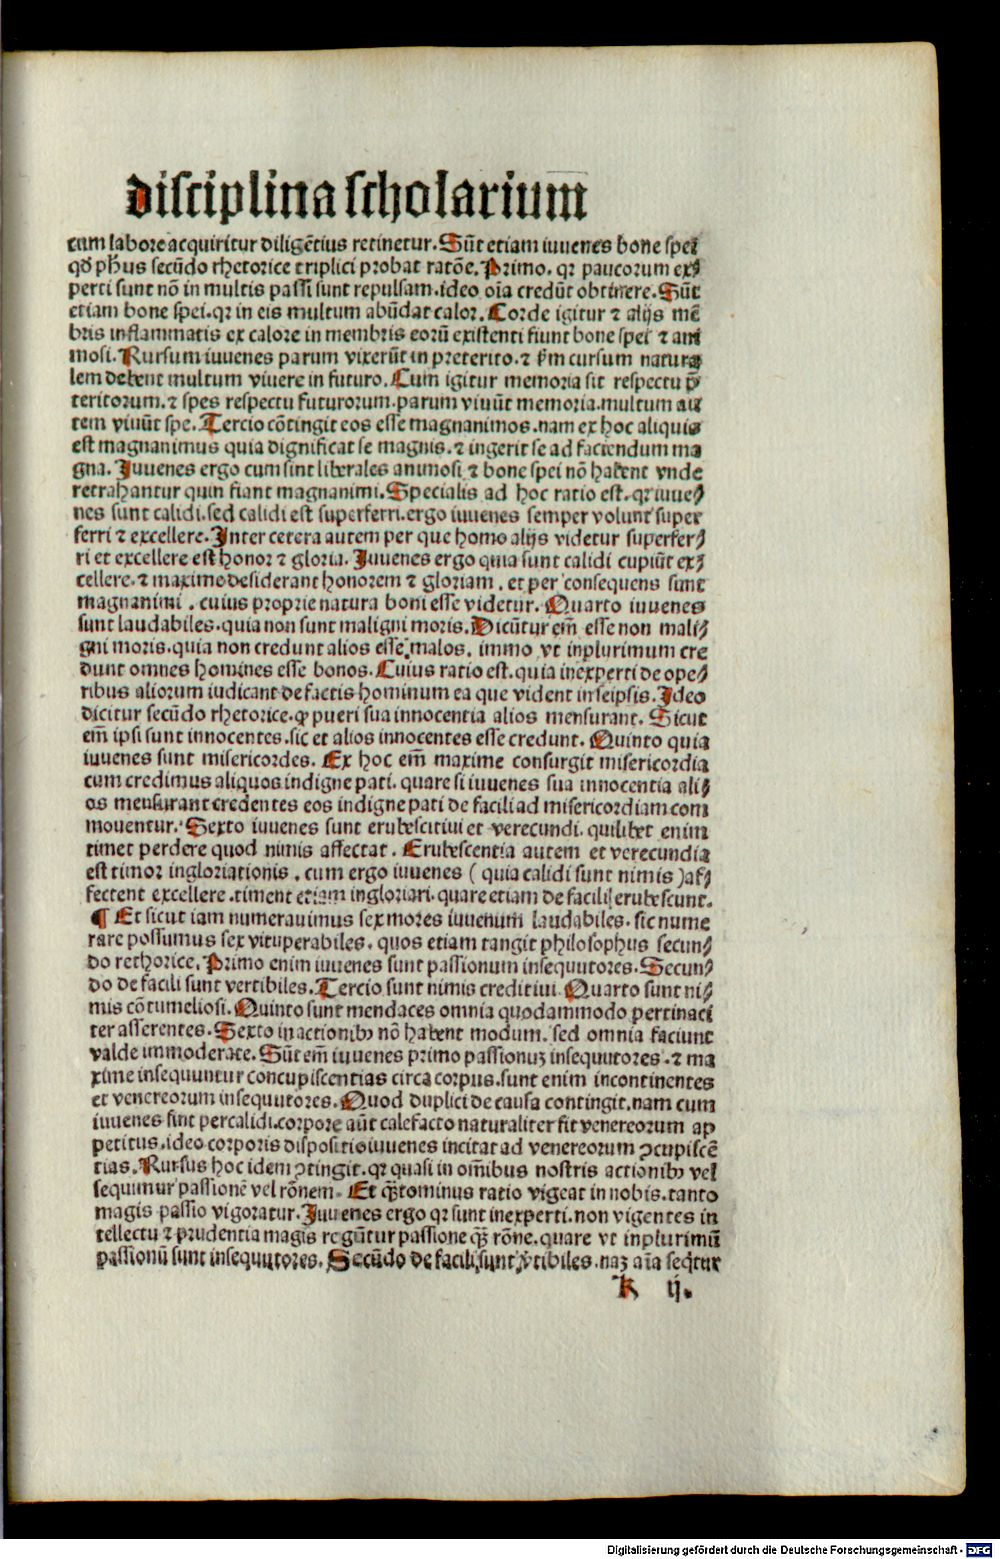 disciplina scholarium
cum labore acquiritur diligētius retinetur. Sūt etiam iuuenes bone spei
qđ phūs secūdo rhetorice triplici probat ratōe. Primo. qꝛ paucorum ex⸗
perti sunt nō in multis passi sunt repulsam. ideo oīa credūt obtinere. Sūt
etiam bone spei. qꝛ in eis multum abūdat calor. Corde igitur ⁊ alijs mē
bris inflammatis ex calore in membris eorū existenti fiunt bone spei ⁊ ani
mosi. Rursum iuuenes parum vixerūt in preterito. ⁊ ẜm cursum natura
lem debent multum viuere in futuro. Cum igitur memoria sit respectu p̄
teritorum. ⁊ spes respectu futurorum. parum viuūt memoria. multum au
tem viuūt spe. Tercio cōtingit eos esse magnanimos. nam ex hoc aliquis
est magnanimus quia dignificat se magnis. ⁊ ingerit se ad faciendum ma
gna. Iuuenes ergo cum sint liberales animosi ⁊ bone spei nō habent vnde
retrahantur quin fiant magnanimi. Specialis ad hoc ratio est. qꝛ iuue⸗
nes sunt calidi. sed calidi est superferri. ergo iuuenes semper volunt super
ferri ⁊ excellere. Inter cetera autem per que homo alijs videtur superfer⸗
ri et excellere est honor ⁊ gloria. Iuuenes ergo quia sunt calidi cupiūt ex⸗
cellere. ⁊ maxime desiderant honorem ⁊ gloriam. et per consequens sunt
magnanimi. cuius proprie natura boni esse videtur. Quarto iuuenes
sunt laudabiles. quia non sunt maligni moris. Dicūtur em̄ esse non mali⸗
gni moris. quia non credunt alios esse malos. immo vt inplurimum cre
dunt omnes homines esse bonos. Cuius ratio est. quia inexperti de ope⸗
ribus aliorum iudicant de factis hominum ea que vident in seipsis. Ideo
dicitur secūdo rhetorice. ꝙ pueri sua innocentia alios mensurant. Sicut
em̄ ipsi sunt innocentes. sic et alios innocentes esse credunt. Quinto quia
iuuenes sunt misericordes. Ex hoc em̄ maxime consurgit misericordia
cum credimus aliquos indigne pati. quare si iuuenes sua innocentia ali⸗
os mensurant credentes eos indigne pati de facili ad misericordiam com
mouentur. Sexto iuuenes sunt erubescitiui et verecundi. quilibet enim
timet perdere quod nimis affectat. Erubescentia autem et verecundia
est timor ingloriationis. cum ergo iuuenes (quia calidi sunt nimis) af⸗
fectent excellere. timent etiam ingloriari. quare etiam de facili erubescunt.
¶ Et sicut iam numerauimus sex mores iuuenum laudabiles. sic nume
rare possumus sex vituperabiles. quos etiam tangit philosophus secun⸗
do rethorice. Primo enim iuuenes sunt passionum insequutores. Secun⸗
do de facili sunt vertibiles. Tercio sunt nimis creditiui. Quarto sunt ni⸗
mis cōtumeliosi. Quinto sunt mendaces omnia quodammodo pertinaci
ter asserentes. Sexto in actionibꝰ nō habent modum. sed omnia faciunt
valde immoderate. Sūt em̄ iuuenes primo passionuꝫ insequutores. ⁊ ma
xime insequuntur concupiscentias circa corpus. sunt enim incontinentes
et venereorum insequutores. Quod duplici de causa contingit. nam cum
iuuenes sint percalidi. corpore aūt calefacto naturaliter fit venereorum ap
petitus. ideo corporis dispositio iuuenes incitat ad venereorum ↄcupiscē
tias. Rursus hoc idem ↄtingit. qꝛ quasi in om̄ibus nostris actionibꝰ vel
sequimur passionē vel rōnem. Et q̄ꝫtominus ratio vigeat in nobis. tanto
magis passio vigoratur. Iuuenes ergo qꝛ sunt inexperti. non vigentes in
tellectu ⁊ prudentia magis regūtur passione q̄ꝫ rōne. quare vt inplurimū
passionū sunt insequutores. Secūdo de facili sunt v̄tibiles. naꝫ aīa seqtur
K ij.
Digitalisierung gefördert durch die Deutsche Forschungsgemeinschaft - DFG